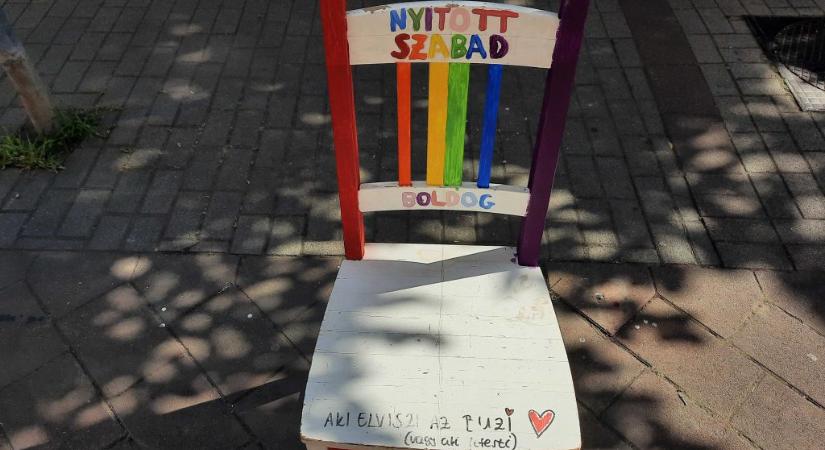 NYITOTT
SZABAD
BOLDOG
AKI ELVISZI AZ BUZI
(vagy aki